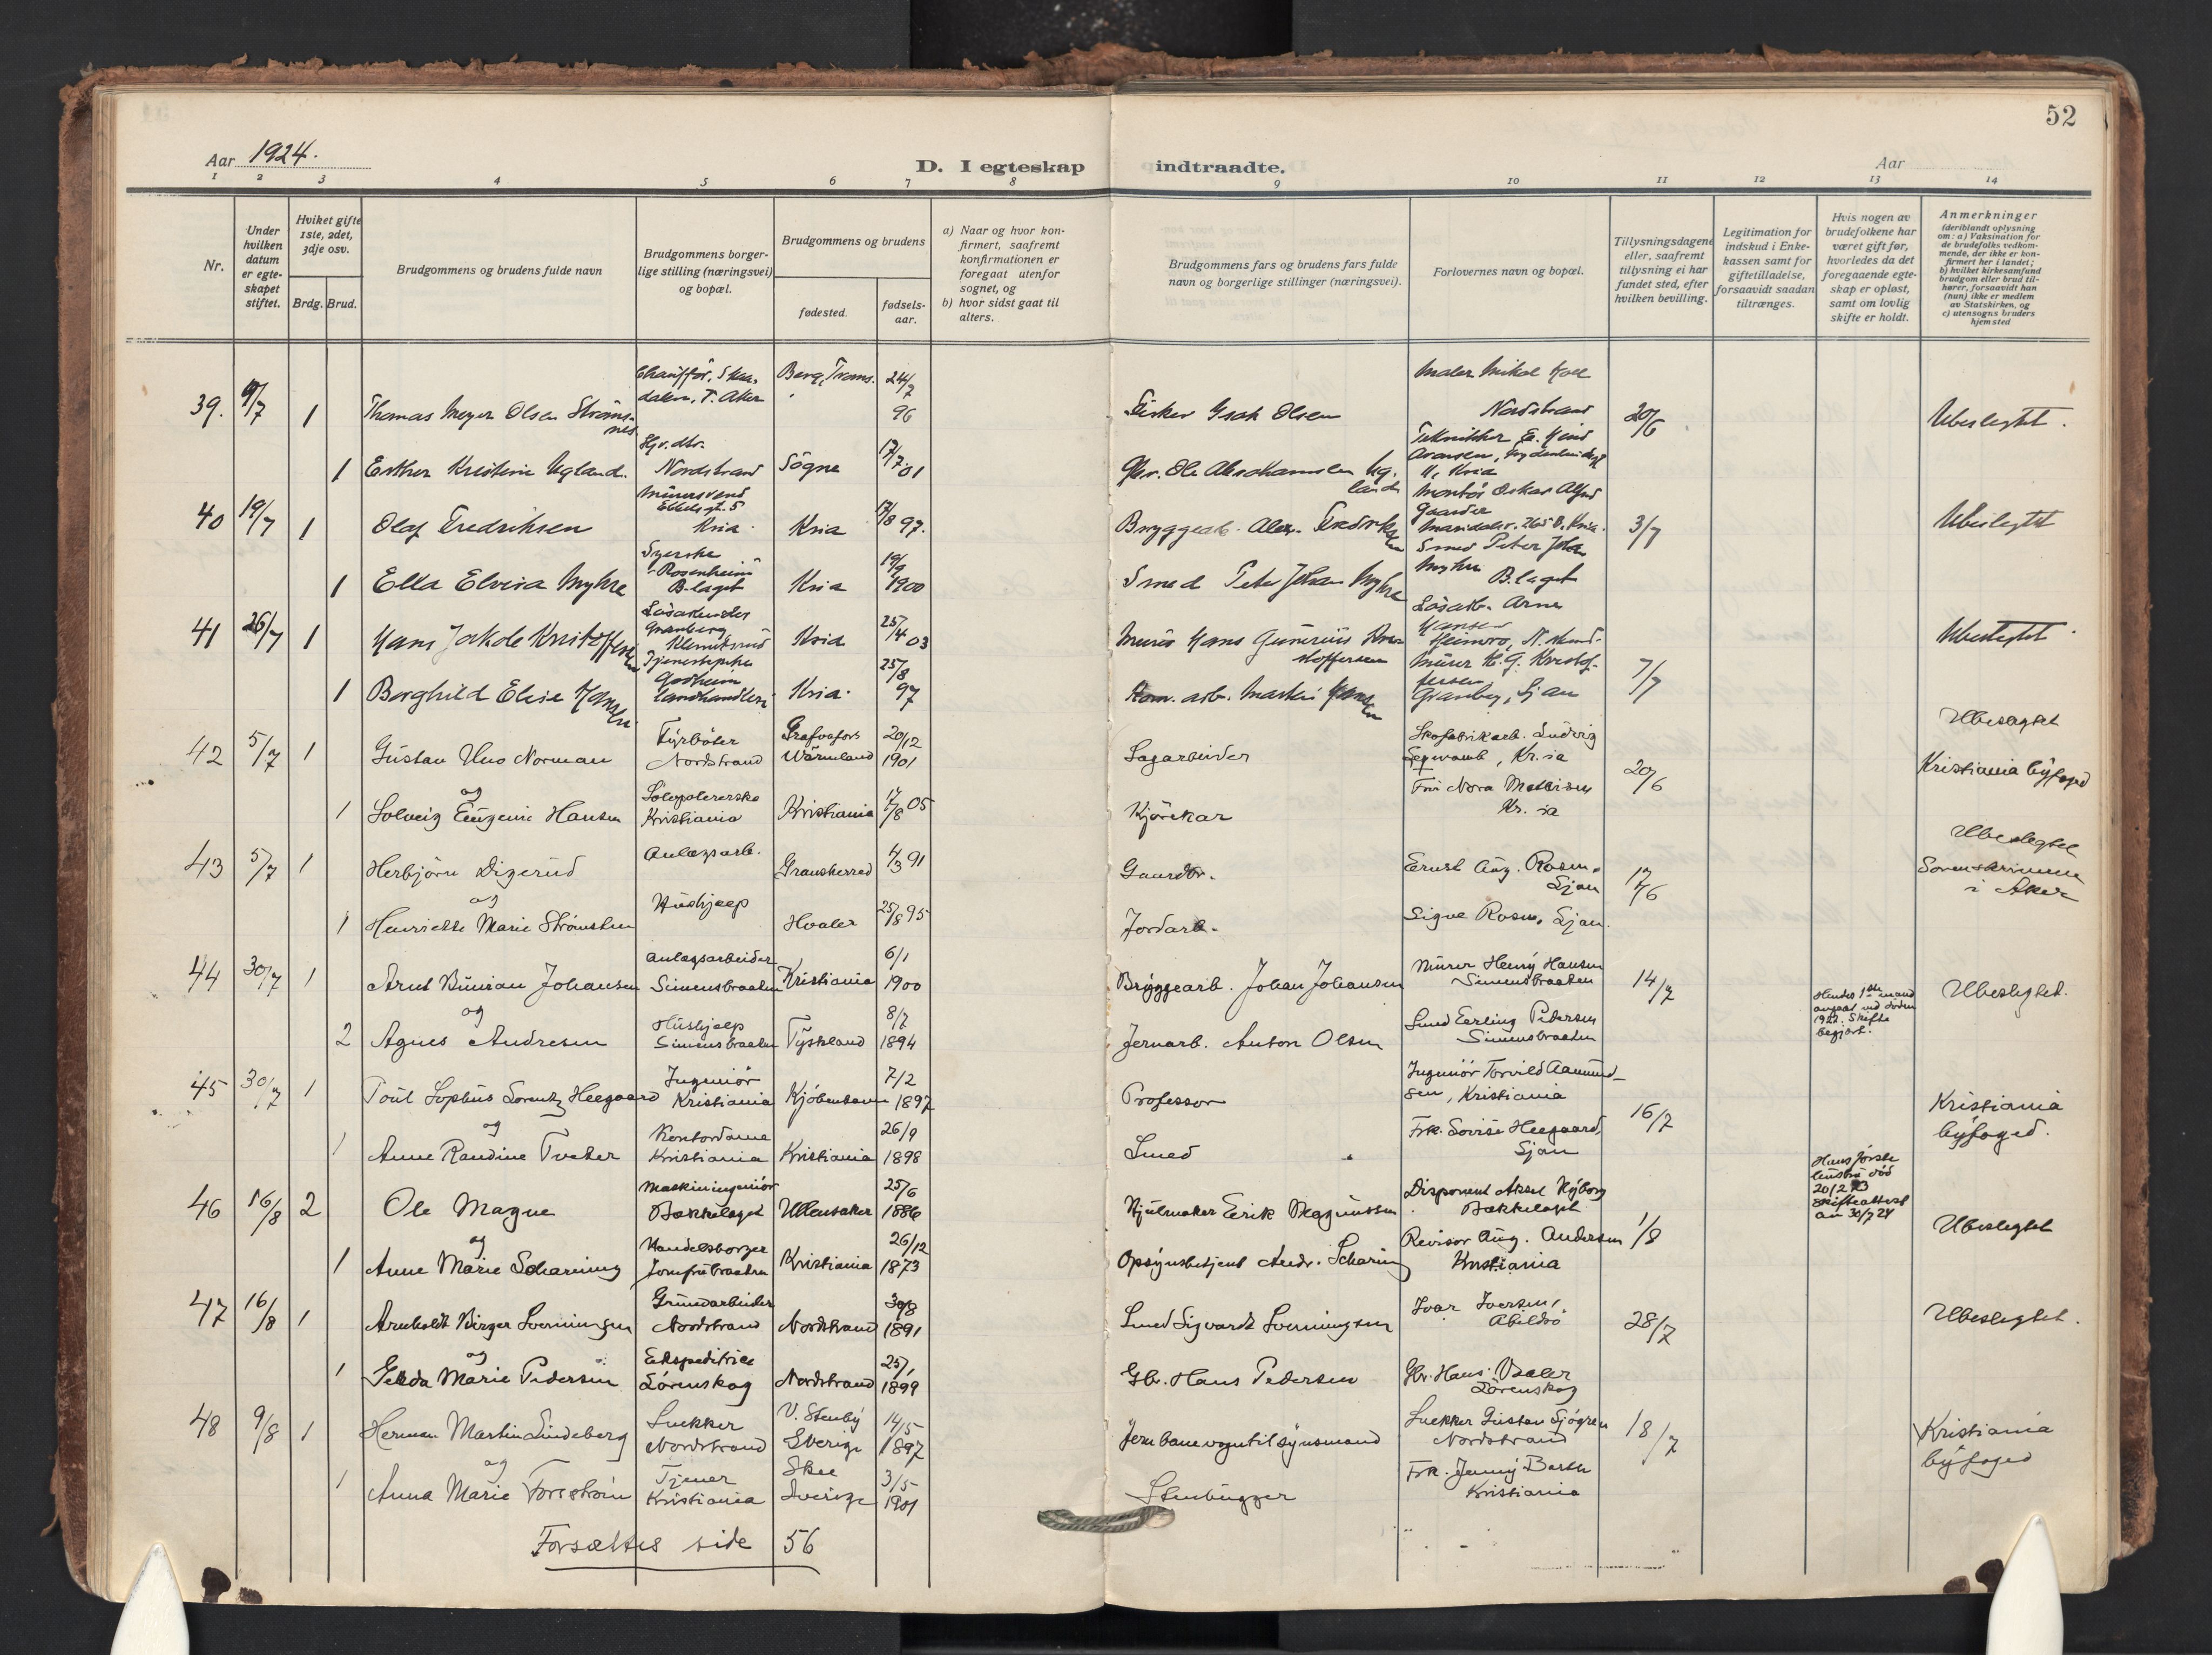 52
Aar 1924.
D. I egteskap indtraadte.
Aar
1 2 3 4 5 6 7 8 9 10 11 12 13 14
Nr.
Under hvilken datum er egteskapet stiftet.
Hviket gifte 1ste, 2det, 3dje osv.
Brdg. Brud.
Brudgommens og brudens fulde navn
Brudgommens borgerlige stilling (næringsvei) og bopæl.
Brudgommens og brudens
fødested.
fødselsaar.
a) Naar og hvor konfirmert, saafremt konfirmationen er foregaat utenfor sognet, og
b) hvor sidst gaat til alters.
Brudgommens fars og brudens fars fulde navn og borgerlige stillinger (næringsvei).
Forlovernes navn og bopæl.
Tillysningsdagene eller, saafremt tillysning ei har fundet sted, efter hvilken bevilling.
Legitimation for indskud i Enkekassen samt for giftetilladelse, forsaavidt saadan tiltrænges.
Hvis nogen av brudefolkene har været gift før, hvorledes da det foregaaende egteskap er opløst, samt om lovlig skifte er holdt.
Anmerkninger (deriblandt oplysning om: a) Vaksination for de brudefolks vedkommende, der ikke er konfirmert her i landet; b) hvilket kirkesamfund brudgom eller brud tilhører, forsaavidt han (hun) ikke er medlem av Statskirken, og c) utensogns bruders hjemsted
39. 1 Thomas Meyer Olsen Strømsnes Chauffør, T. Aker Berg, Troms. 24/7 96 Fisker Isak Olsen Maler Nordstrand 20/6 Ubeslegtet.
1 Esther Kristine Ugland. Nordstrand Søgne 17/7 01 Ole Abrahamsen Ugland Kria
40 19/7 1 Olaf Fredriksen Murersvend Kria. Kria 17/8 97. Bryggearb. Alex. Fredriksen Montør Oskar Alfred Gaarder Maridalsv. 265 Kria. 3/7 Ubeslegtet
1 Ella Elvira Myhre Syerske Rosenheim B.laget Kria 19/9 1900 Smed Peter Johan Myhre Smed Peter Johan Myhre B.laget
41 26/7 1 Hans Jakob Kristoffersen Løsarbeider Granberg Klemetsrud Kria 25/4 03 Murer Hans Gunerius Kristoffersen Løsarb. Arne Hansen Ubeslegtet.
1 Borghild Elise Hansen Tjenestepike Godheim Landhandleri Kria. 25/8 97 Kom. arb. Martin Hansen Murer H. G. Kristoffersen Granberg, Ljan 7/7
42 5/7 1 Gustav Uno Norman Fyrbøter Nordstrand Wärmland 20/12 1901 Sagarbeider Skofabrikarb. Ludvig , Kr.ia 20/6 Ubeslegtet Kristiania byfoged
og
1 Solveig Eugenie Hansen Kristiania Kristiania 17/8 05 Kjørekar Nora Kr.ia
43 5/7 1 Herbjørn Digerud Anlægsarb. Gransherred 4/3 91 Gaardbr. Ernst Aug. Rosen. Ljan 17/6 Ubeslegtet Sorenskriveren i Aker
og
1 Henriette Marie Strømsten Hushjælp Hvaler 25/8 95 Jordarb. Signe Rosen, Ljan.
44 30/7 1 Arnt Johansen Anlægsarbeider Simensbraaten Kristiania 6/1 1900 Bryggearb. Johan Johansen Murer Henry Hansen Simensbraaten 14/7 Ubeslegtet.
og
2 Agnes Andresen Hushjælp Simensbraaten Tyskland 8/7 1894 Jernarb. Anton Olsen Smed Erling Pedersen Simensbraaten Hendes 1ste mand avgaat ved døden 1922. Skifte begjært.
45 30/7 1 Poul Sophus Lorentz Heegaard Ingeniør Kristiania Kjøbenhavn 7/2 1897 Professor Ingeniør Torvild Aamundsen, Kristiania 16/7 Kristiania byfoged.
og
1 Anne Randine Tveter Kontordame Kristiania Kristiania 26/9 1898 Smed Frk. Lovise Heegaard, Ljan
46 16/8 2 Ole Magne Maskiningeniør Bækkelaget Ullensaker 25/6 1886 Hjulmaker Erik Magnussen Disponent Aksel Nyborg Bækkelaget 1/8 Hans første hustru død 20/2 23 skifteattest av 30/7 24 Ubeslegtet
og
1 Anne Marie Scharning Handelsborger Jomfrubraaten Kristiania 26/12 1873 Opsynsbetjent Andr. Scharning Revisor Aug. Andersen Kristiania
47 16/8 1 Arnholdt Birger Svenningsen Grundarbeider Nordstrand Nordstrand 30/8 1891 Smed Sigvardt Svenningsen Ivar Iversen, Abildsø 28/7 Ubeslegtet.
og
1 Gerda Marie Pedersen Ekspeditrice Lørenskog Nordstrand 25/1 1899 Gbr. Hans Pedersen Gbr. Hans Lørenskog
48 9/8 1 Herman Martin Lindeberg Snekker Nordstrand V. Stenby Sverige 14/5 1897 Jernbanevogntilsynsmand Snekker Gustav Sjøgren Nordstrand 18/7 Kristiania byfoged
og
1 Anna Marie Tjener Kristiania Skee Sverige 3/5 1901 Stenhugger Frk. Jenny Barth Kristiania
Forsættes side 56